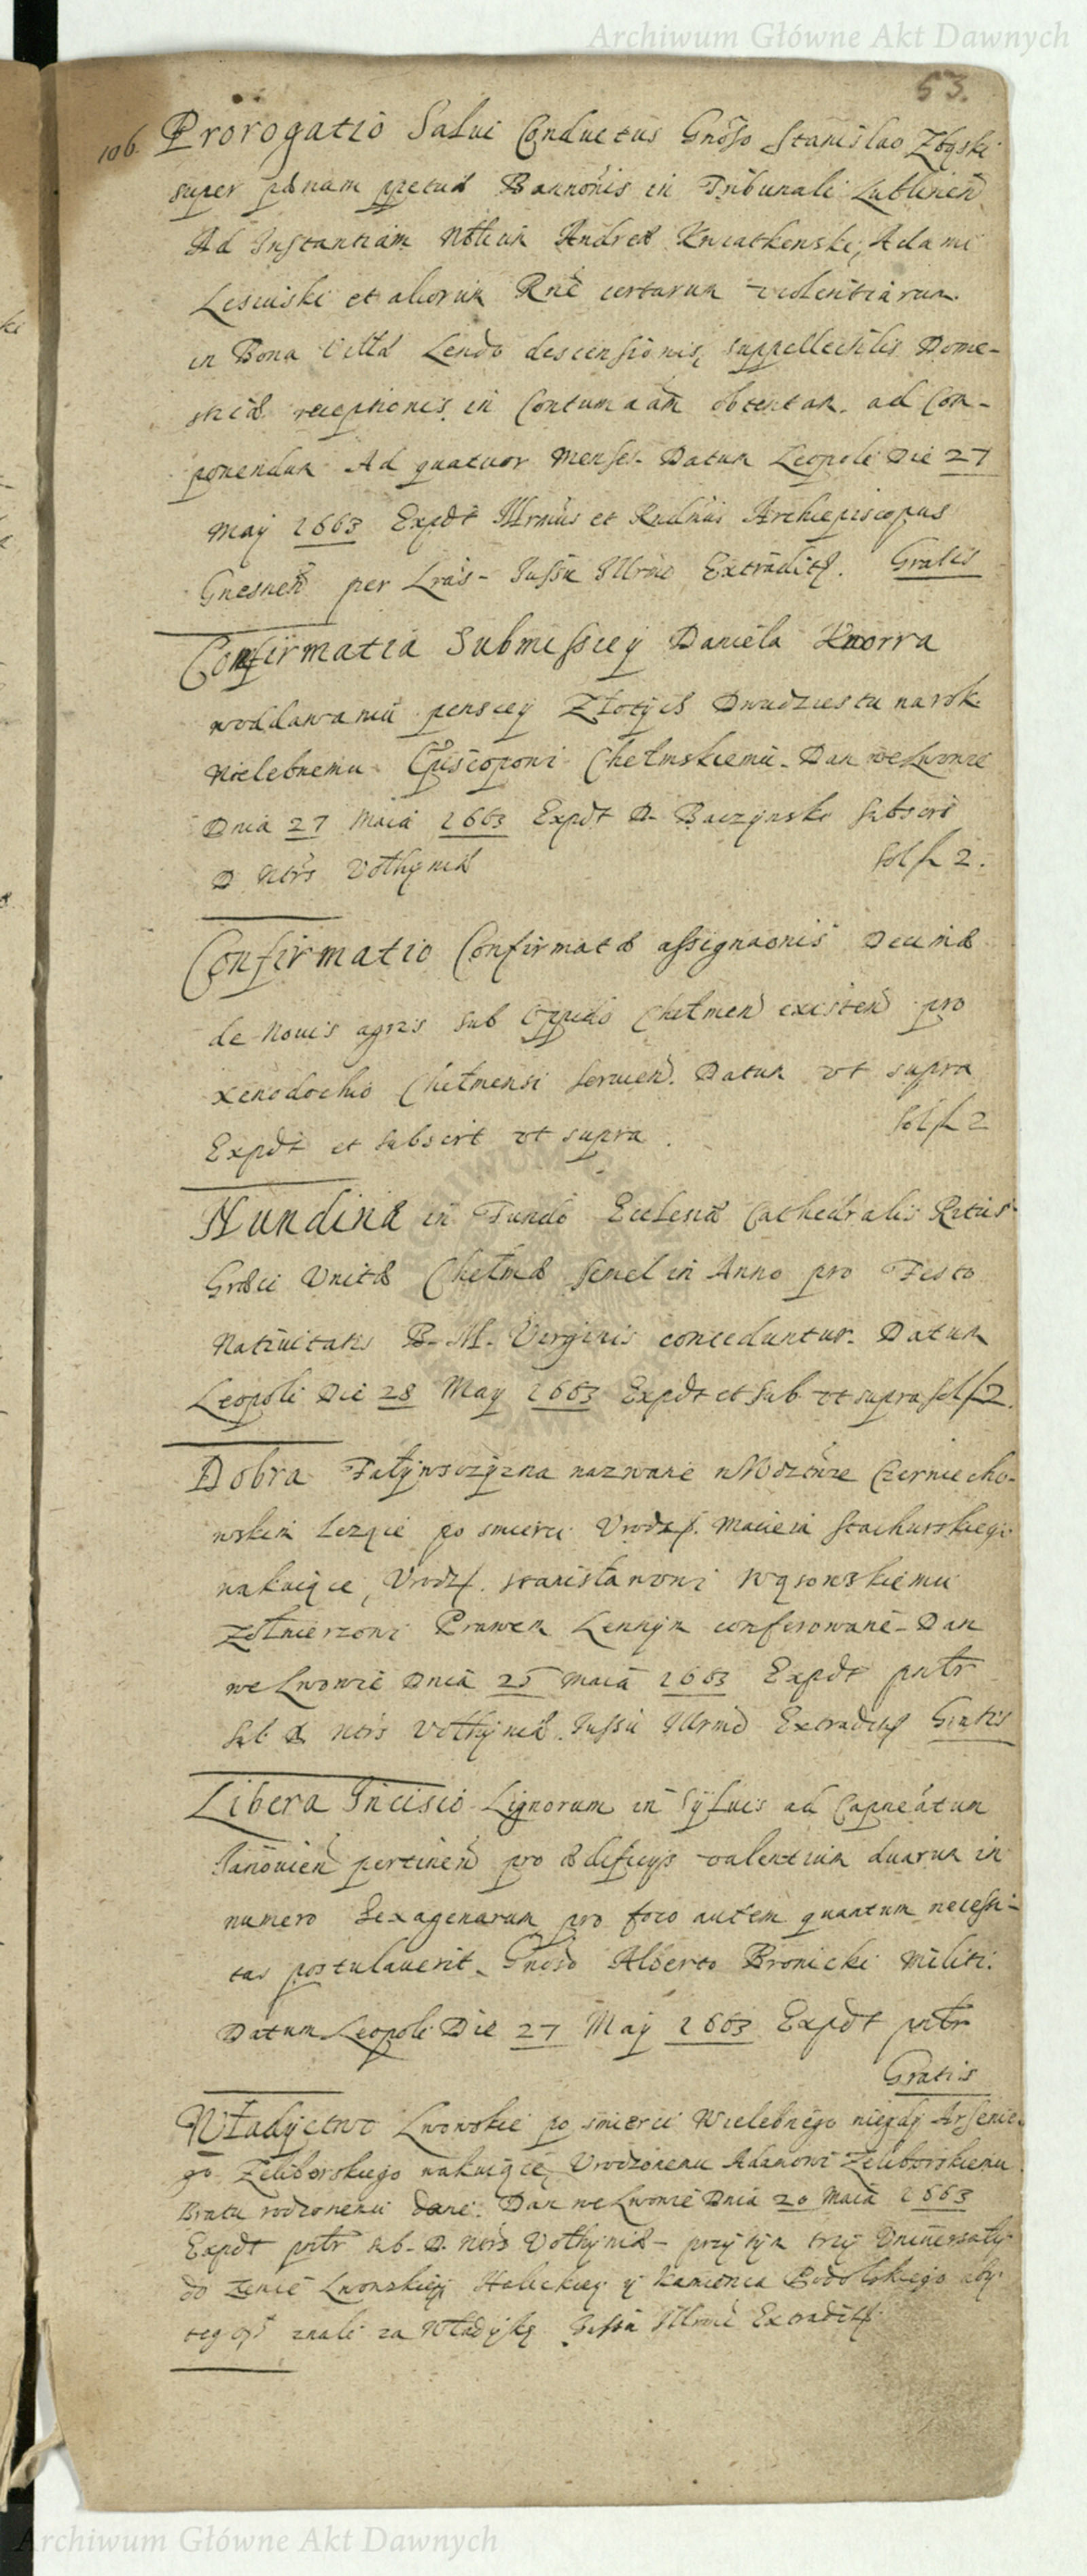 Archiwum Główne Akt Dawnych
53.
106. Prorogatio Salui Conductus Gnōso Stanislao Zbąski
super pænam ppetuæ Bannōnis in Tribunali Lublineñ
Ad Instantiam Nōlium Andreæ Kwiatkenski, Adami
Lesiuski et aliorum Rnē certarum violentiarum
in Bona Villæ Lendo descensionis, suppellectilis Dome-
sticæ receptionis in Contumaām obtentam. ad Com-
ponendum Ad quatuor Menses. Datum Leopoli Die 27
May 1663 Expdt Illrmus et Rndnus Archiepiscopus
Gnesneñ per Lrās - Jussu Illrmō Extradit. Gratis
Confirmatia Submissiey Daniela Knorra
w oddawaniu pensiey Złotych Dwudziestu na rok
Wielebnemu Episcopowi Chełmskiemu. Dan we Lwowie
Dnia 27 Maia 1663 Expdt D. Baczynski Subscri
D Ntrs Vołhyniæ sol f 2.
Confirmatio Confirmatæ assignaonis Decimæ
de Nouis agris sub Oppido Chełmeñ existeñ pro
xenodochio Chełmensi seruieñ. Datum vt supra
Expdt et subscrit vt supra. sol f 2
Nundinæ in Fundo Ecclesiæ Cathedralis Ritus
Græci Vnitæ Chełmæ semel in Anno pro Festo
Natiuitatis B. M. Virginis conceduntur. Datum
Leopoli Die 28 May 1663 Expdt et Sub vt supra sol f 2.
Dobra Fałynszczyzna nazwane w Wdztwie Czerniecho-
wskim Leżące po smierci Vrodz. Macieia Stachurskiego
wakuiące, Vrodz. Stanisławowi Wąsowskiemu
żołnierzowi Prawem Lennym conferowane - Dan
we Lwowie Dnia 25 Maia 1663 Expdt pntr
Sub D Ntrs Vołhyniæ. Jussu Illrmō Extradit Gratis
Libera Incisio Lignorum in Syluis ad Capneatum
Janouieñ pertineñ pro ædificys valentium duarum in
numero Sexagenarum pro foco autem quantum necessi-
tas postulauerit. Gnoso Alberto Bronicki Militi.
Datum Leopoli Die 27 May 1663 Expdt pntr
Gratis
Władyctwo Lwowskie po smierci Wielebnego niegdy Arsenie-
go Zeliborskiego wakuiące, Vrodzonemu Adamowi Zeliborskiemu
Bratu rodzonemu dane. Dan we Lwowie Dnia 20 Maia 1663
Expdt pntr sub. D. Ntrs Vołhyniæ - przy tym trzy Vniuersały
do Ziemie Lwowskiey Halickiey y Kamienca Podolskiego aby
tegoż znali za Władykę Jussu Illrmi Extradit
Archiwum Główne Akt Dawnych